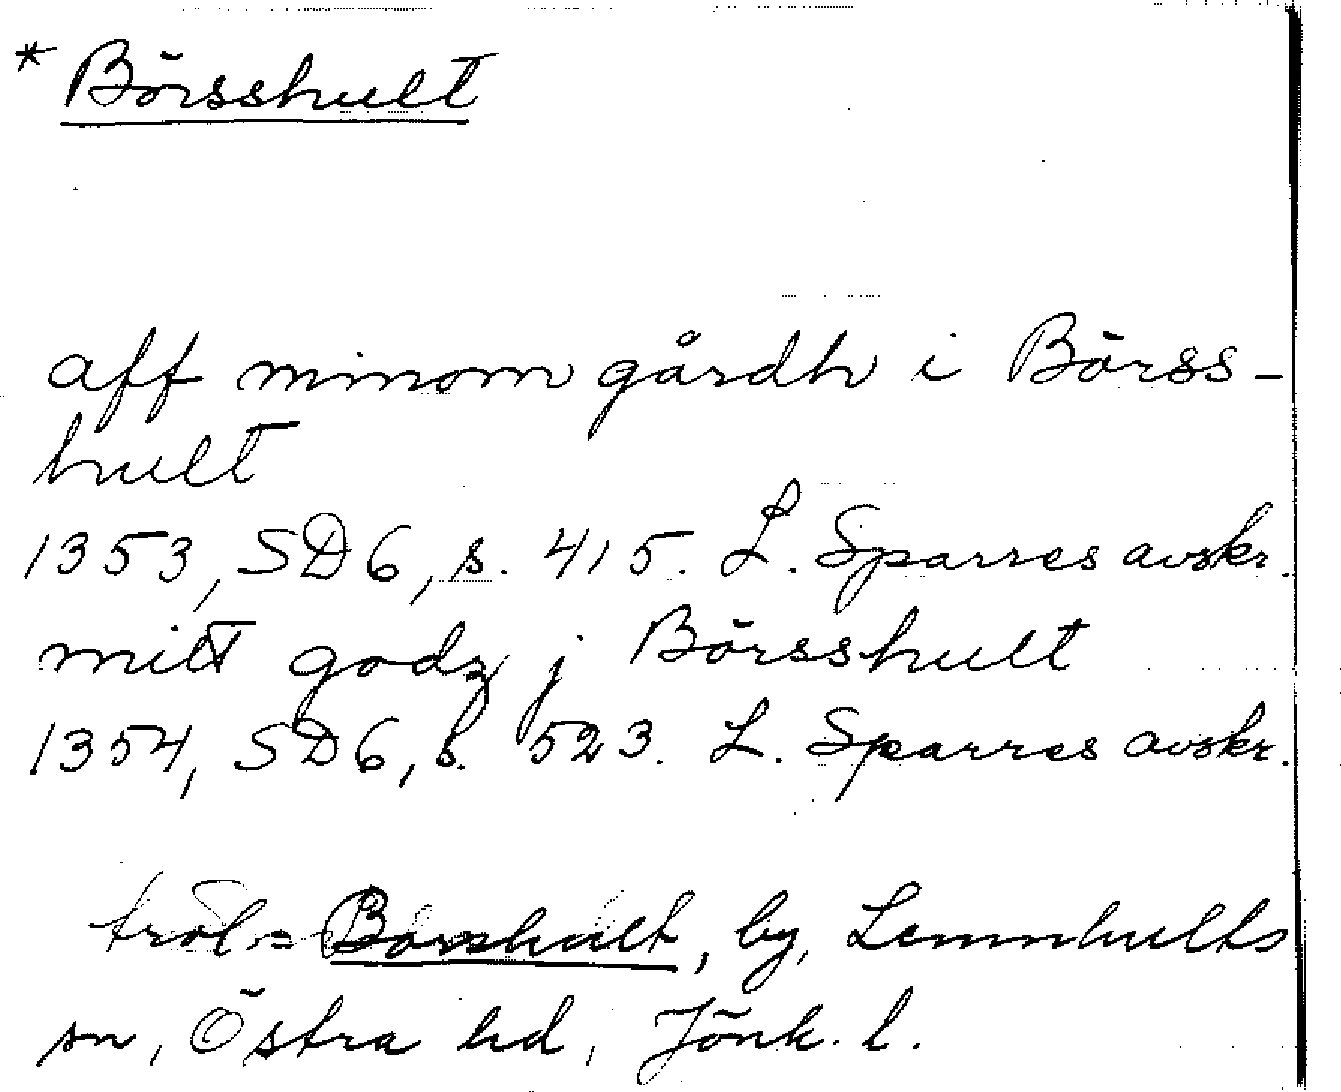 * Börsshult
aff minom gårdh i Börss-
hult
1353, SD6, s. 415. L. Sparres avskr.
mitt godz j Börsshult
1354, SD6, s. 523. L. Sparres avskr.
trol. = Boarshult, by, Lemnhults
sn, Östra hd, Jönk. l.